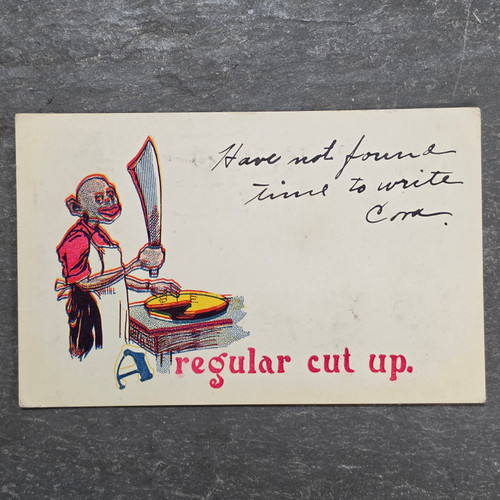 Have not found
time to write
Cora.
A regular cut up.